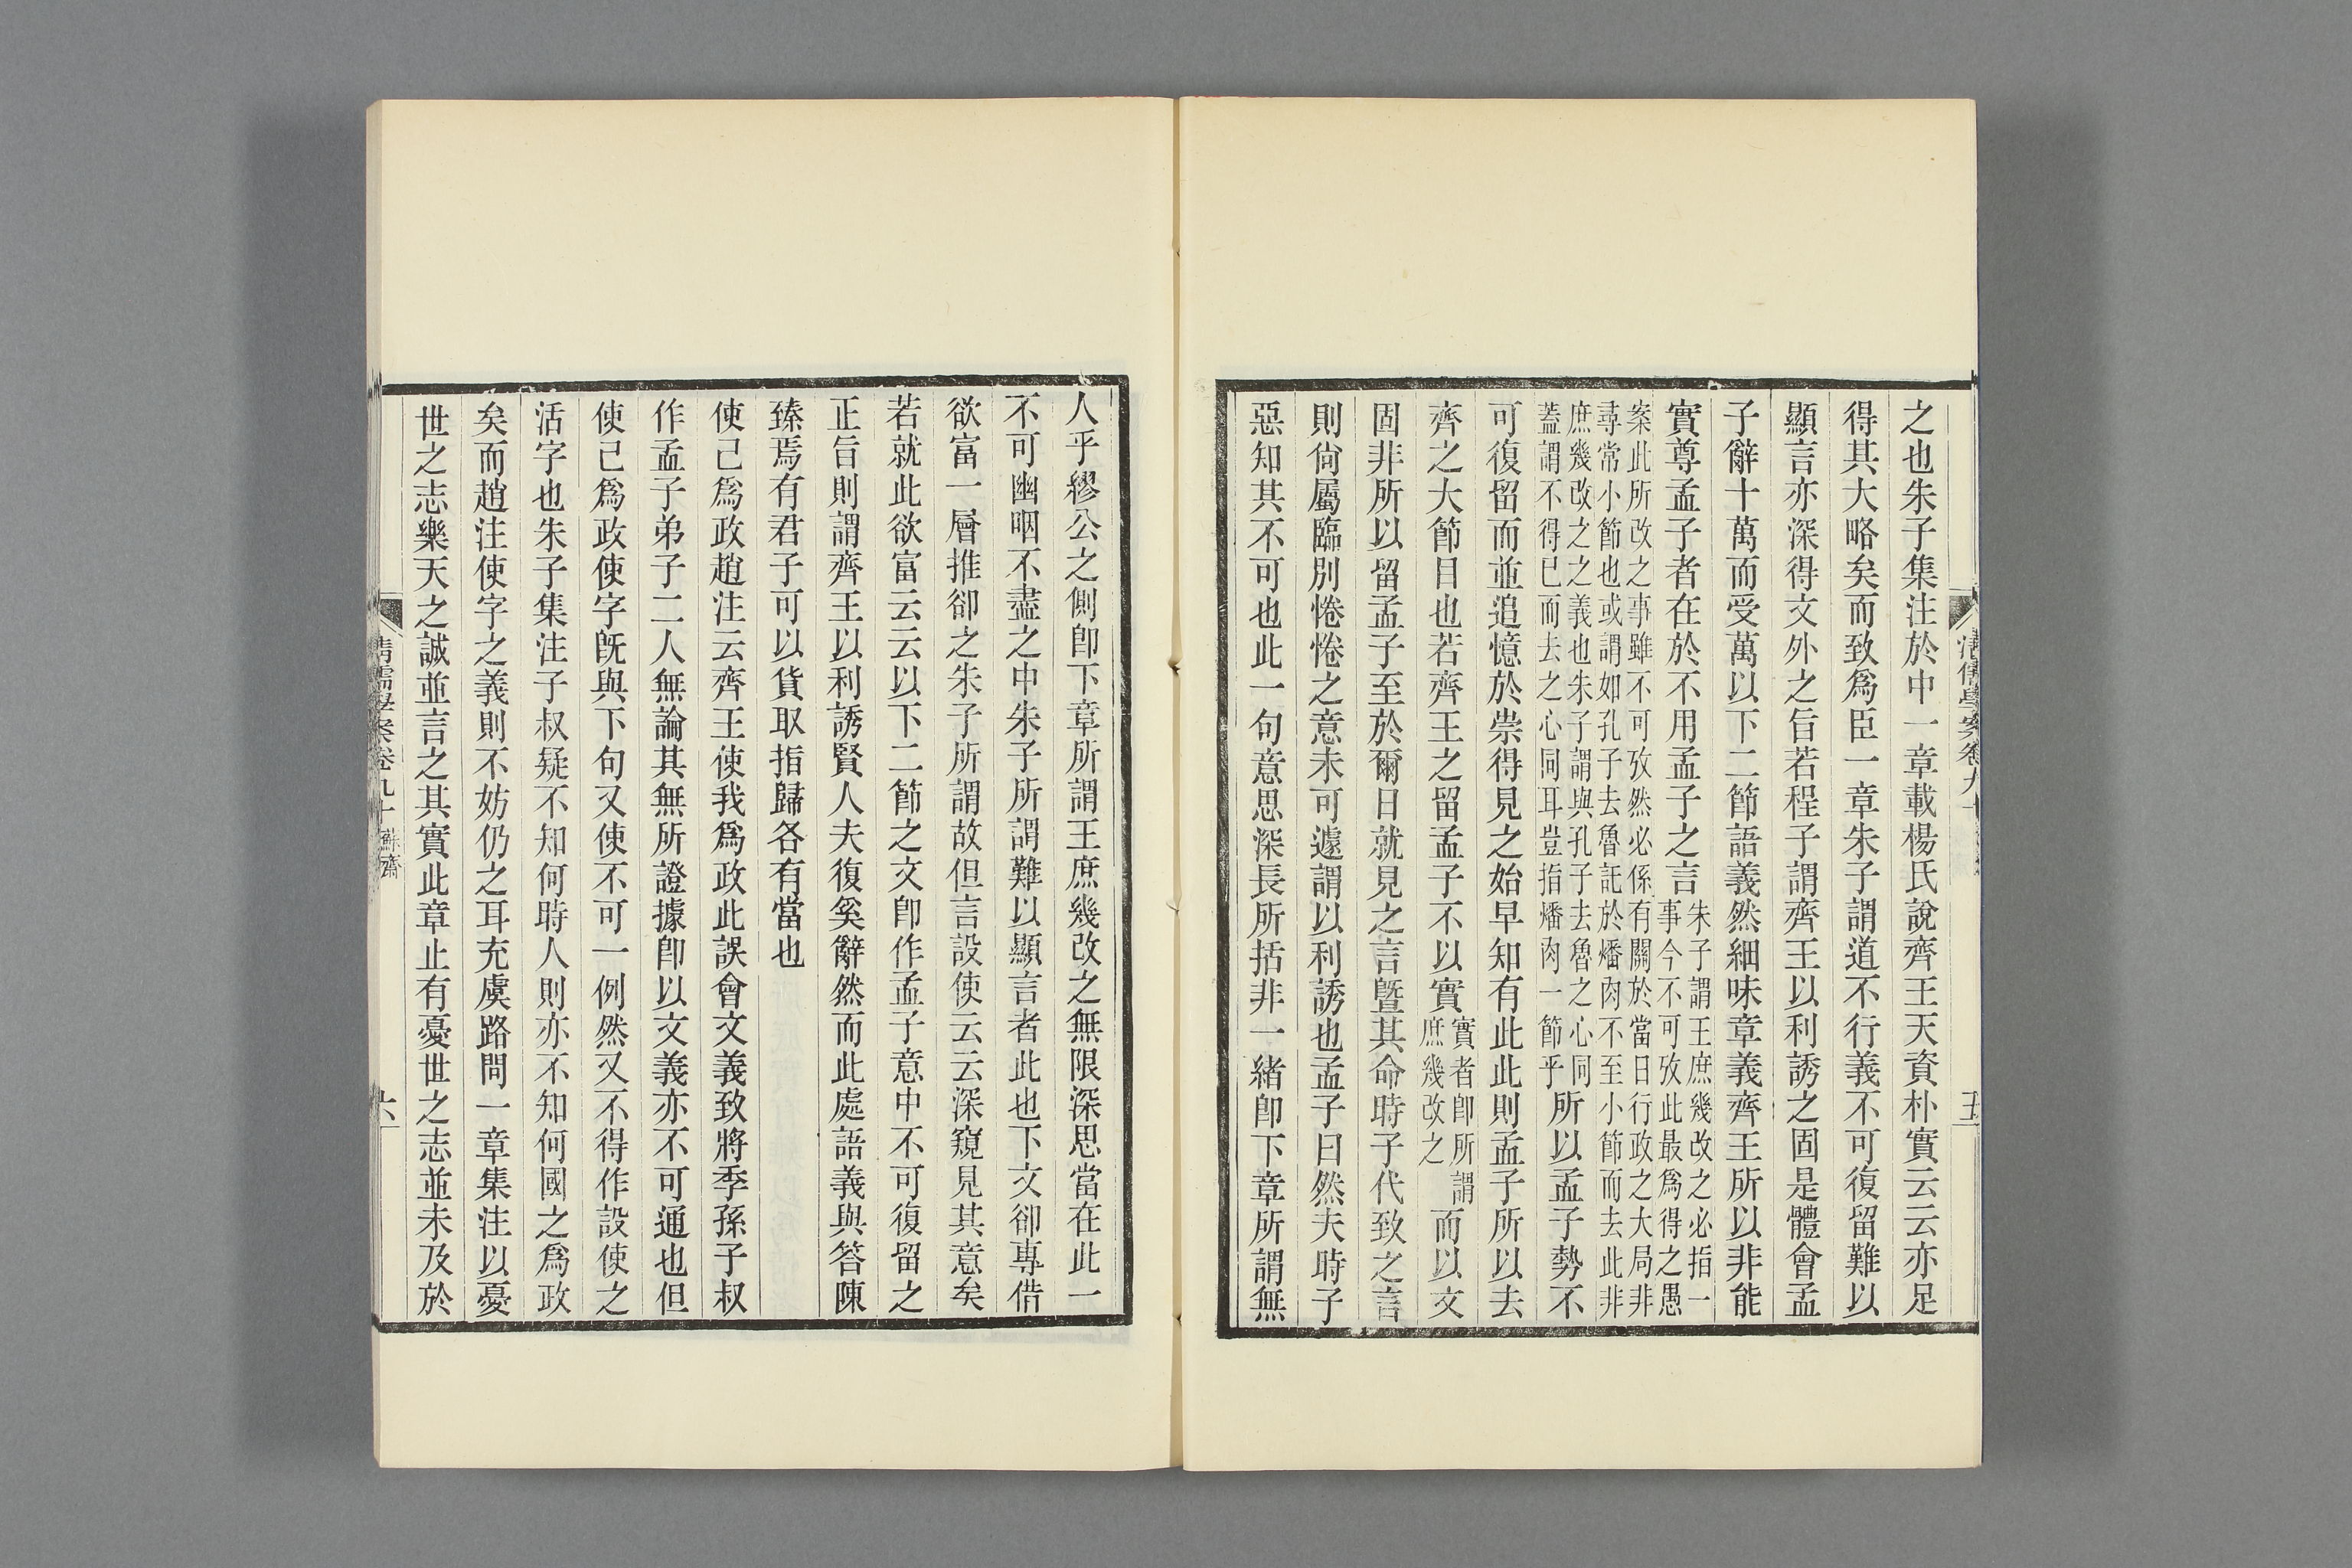 之也朱子集注於中一章載楊氏說齊王天資朴實云云亦足
得其大略矣而致爲臣一章朱子謂道不行義不可復留難以
顯言亦深得文外之旨若程子謂齊王以利誘之固是體會孟
子辭十萬而受萬以下二節語義然細味章義齊王所以非能
實尊孟子者在於不用孟子之言朱子謂王庶幾改之必指一
事今不可攷此最爲得之愚
案此所改之事雖不可攷然必係有關於當日行政之大局非
尋常小節也或謂如孔子去魯託於燔肉不至小節而去此非
庶幾改之之義也朱子謂與孔子去魯之心同
蓋謂不得已而去之心同耳豈指燔肉一節乎所以孟子勢不
可復留而並追憶於崇得見之始早知有此此則孟子所以去
齊之大節目也若齊王之留孟子不以實實者卽所謂
庶幾改之而以文
固非所以留孟子至於爾日就見之言曁其命時子代致之言
則尙屬臨別惓惓之意未可遽謂以利誘也孟子曰然夫時子
惡知其不可也此一句意思深長所括非一緒卽下章所謂無
人乎繆公之側卽下章所謂王庶幾改之無限深思當在此一
不可幽咽不盡之中朱子所謂難以顯言者此也下文卻專借
欲富一層推卻之朱子所謂故但言設使云云深窺見其意矣
若就此欲富云云以下二節之文卽作孟子意中不可復留之
正旨則謂齊王以利誘賢人夫復奚辭然而此處語義與答陳
臻焉有君子可以貨取指歸各有當也
使己爲政趙注云齊王使我爲政此誤會文義致將季孫子叔
作孟子弟子二人無論其無所證據卽以文義亦不可通也但
使己爲政使字旣與下句又使不可一例然又不得作設使之
活字也朱子集注子叔疑不知何時人則亦不知何國之爲政
矣而趙注使字之義則不妨仍之耳充虞路問一章集注以憂
世之志樂天之誠並言之其實此章止有憂世之志並未及於
清儒學案卷九十 蘇齋
六